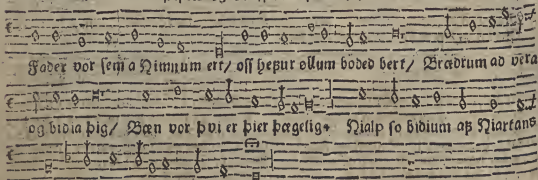 Fader vor sem a Himnum ert/ oss hefur ollum boded bert/ Brædrum ad vera
og bidia þig/ Bæn vor þvi er þier þægelig. Hialp so bidium af Hiartans